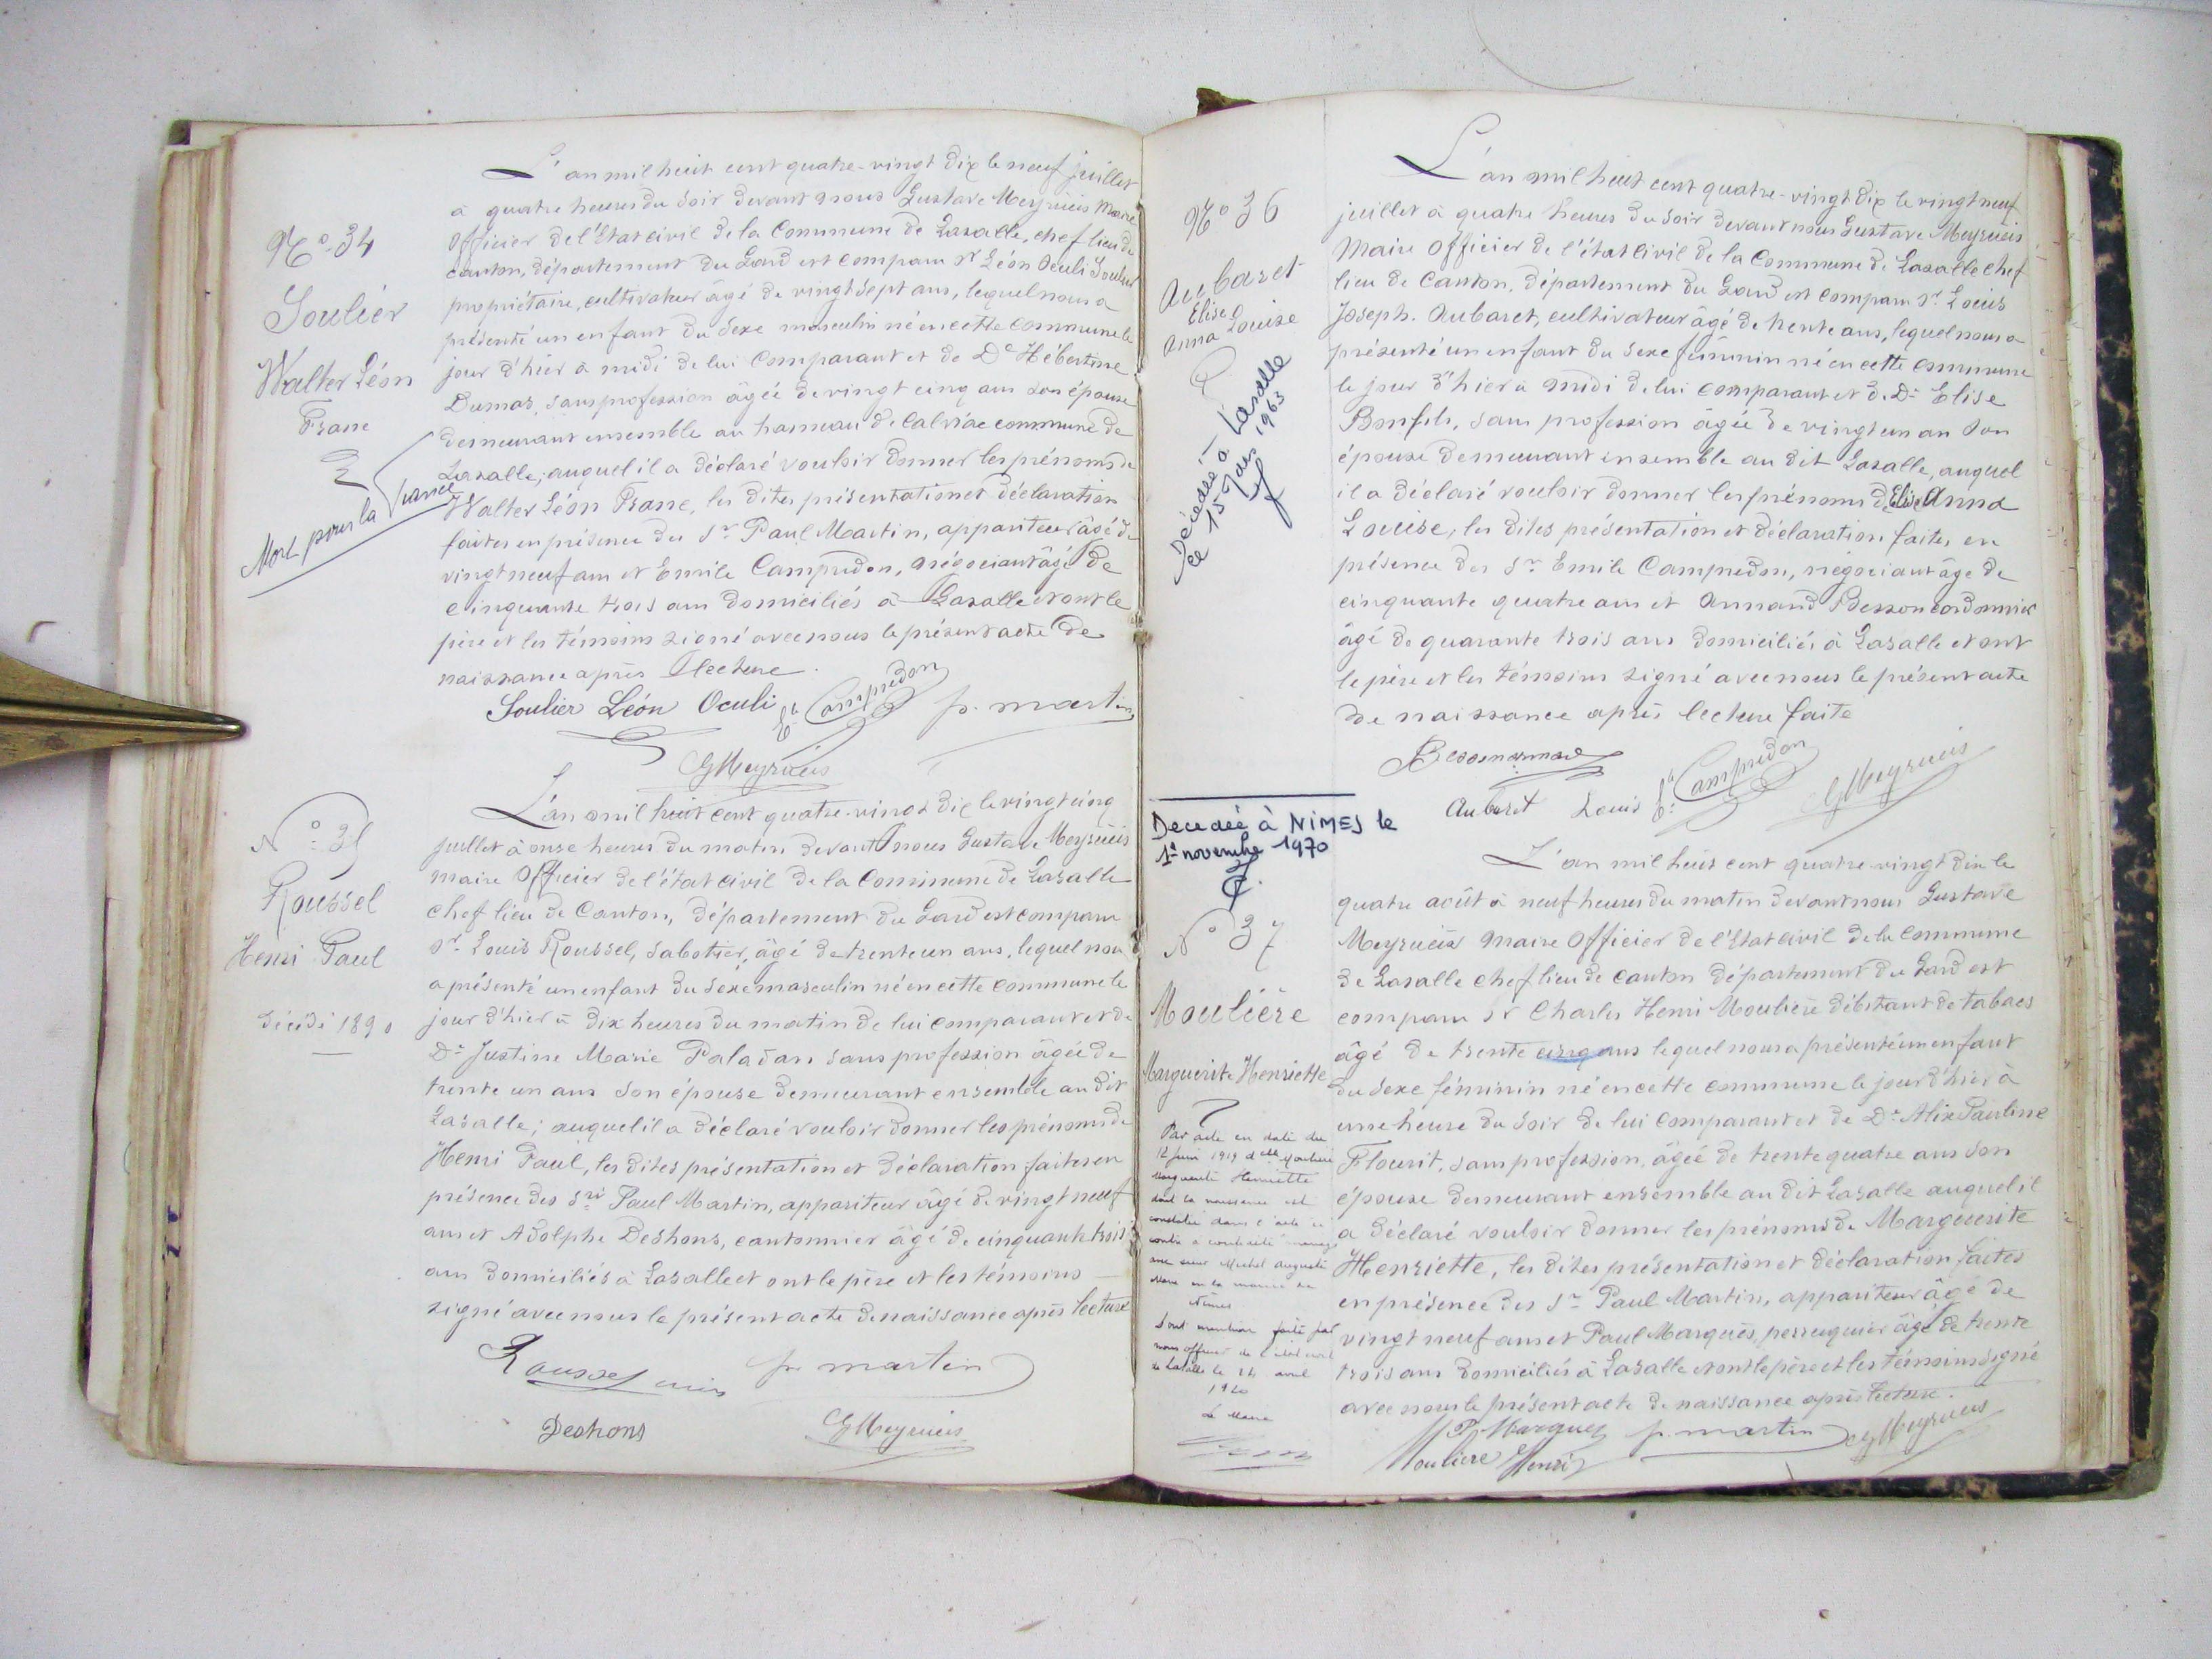 N° 34
Soulier
Walter Léon
Franc
Mort pour la France
L'an mil huit cent quatre-vingt dix le neuf juillet
à quatre heures du soir devant nous Gustave Meyrueis Maire
Officier de l'Etat civil de la Commune de Lasalle, chef lieu de
canton, département du Gard est comparu Sr Léon Oculi Soulier
propriétaire, cultivateur âgé de vingt sept ans, lequel nous a
présenté un enfant du sexe masculin né en cette commune le
jour d'hier à midi de lui comparant et de De Hébertine
Dumas, sans profession âgée de vingt cinq ans son épouse
demeurant ensemble au hameau de Calviac commune de
Lasalle; auquel il a déclaré vouloir donner les prénoms de
Walter Léon Franc, les dites présentation et déclaration
faites en présence des Sr Paul Martin, appariteur âgé de
vingt neuf ans et Emile Campredon, négociant âgé de
cinquante trois ans domiciliés à Lasalle et ont le
père et les témoins signé avec nous le présent acte de
naissance après lecture.
Soulier Léon Oculi Ele Campredon p. martin
GMeyrueis
N° 35
Roussel
Henri Paul
décédé 1890
L'an mil huit cent quatre-vingt dix le vingt cinq
juillet à onze heures du matin devant nous Gustave Meyrueis
maire Officier de l'état civil de la Commune de Lasalle
chef lieu de Canton, département du Gard est comparu
Sr Louis Roussel, sabotier, âgé de trente un ans, lequel nous
a présenté un enfant du sexe masculin né en cette commune le
jour d'hier à dix heures du matin de lui comparant et de
De Justine Marie Paladan sans profession âgée de
trente un ans son épouse demeurant ensemble au dit
Lasalle; auquel il a déclaré vouloir donner les prénoms de
Henri Paul, les dites présentation et déclaration faites en
présence des Srs Paul Martin, appariteur âgé de vingt neuf
ans et Adolphe Deshons, cantonnier âgé de cinquante trois
ans domiciliés à Lasalle et ont le père et les témoins
signé avec nous le présent acte de naissance après lecture
Roussel p. martin
Deshons GMeyrueis
N° 36
Aubaret
Elise
Anna Louise
Décédée à Lasalle
le 15 Jan 1963
L'an mil huit cent quatre-vingt dix le vingt neuf
juillet à quatre heures du soir devant nous Gustave Meyrueis
Maire Officier de l'état civil de la Commune de Lasalle chef
lieu de Canton, département du Gard est comparu Sr Louis
Joseph Aubaret, cultivateur âgé de trente ans, lequel nous a
présenté un enfant du sexe féminin né en cette commune
le jour d'hier à midi de lui comparant et de De Elise
Bonfils, sans profession âgée de vingt un an son
épouse demeurant ensemble au dit Lasalle, auquel
il a déclaré vouloir donner les prénoms d'Elise Anna
Louise, les dites présentation et déclaration faites en
présence des Sr Emile Campredon, négociant âgé de
cinquante quatre ans et Armand Besson cordonnier
âgé de quarante trois ans domiciliés à Lasalle et ont
le père et les témoins signé avec nous le présent acte
de naissance après lecture faite
Aubaret Louis Ele Campredon GMeyrueis
Decedée à NIMES le
1er novembre 1970
N° 37
Moulière
Marguerite Henriette
Par acte en date du
12 juin 1919 delle Moulière
Marguerite Henriette
dont la naissance est
constatée dans l'acte ci
contre a contracté mariage
avec sieur Michel Auguste
en la mairie de
Nimes
Dont mention faite par
nous officier de l'état civil
de Lasalle le 24 avril
1920
Le Maire
L'an mil huit cent quatre-vingt dix le
quatre août à neuf heures du matin devant nous Gustave
Meyrueis Maire Officier de l'Etat civil de la commune
de Lasalle chef lieu de canton département du Gard est
comparu Sr Charles Henri Moulière débitant de tabacs
âgé de trente cinq ans lequel nous a présenté un enfant
du sexe féminin né en cette commune le jour d'hier à
une heure du soir de lui comparant et de De Alix Pauline
Flourit, sans profession, âgée de trente quatre ans son
épouse demeurant ensemble au dit Lasalle auquel il
a déclaré vouloir donner les prénoms de Marguerite
Henriette, les dites présentation et déclaration faites
en présence des Sr Paul Martin, appariteur âgé de
vingt neuf ans et Paul Marquès, perruquier âgé de trente
trois ans domiciliés à Lasalle et ont le père et les témoins signé
avec nous le présent acte de naissance après lecture.
P. Marquès p. martin GMeyrueis
Moulière Henri